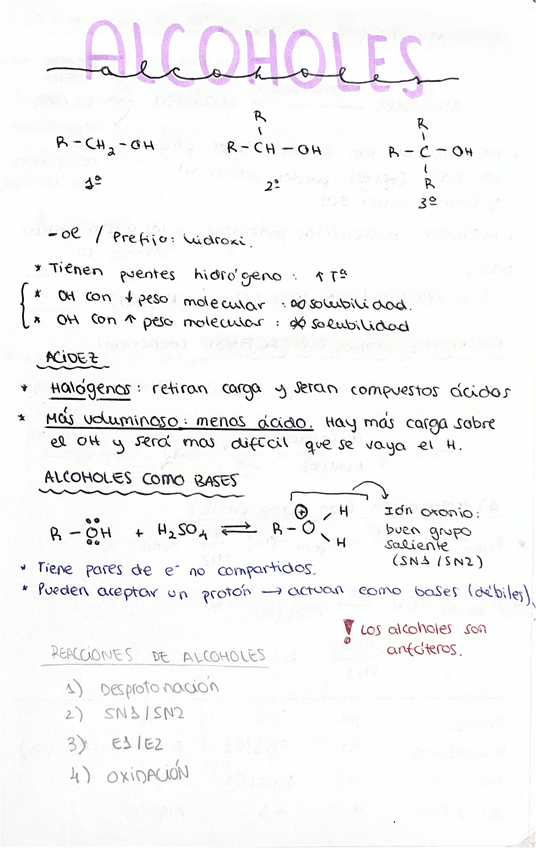 ALCOHOLES
alcoholes
R-CH₂-OH
1º
R
R-CH-OH
2º
R
R-C-OH
R
3º
-ol / Prefijo: hidroxi.
* Tienen puentes hidrógeno: ↑Tª
* OH con ↓ peso molecular : solubilidad.
* OH con ↑ peso molecular : solubilidad
ACIDEZ
* Halógenos: retiran carga y seran compuestos ácidos
* Más voluminoso: menos ácido. Hay más carga sobre
el OH y será mas difícil que se vaya el H.
ALCOHOLES COMO BASES
R-OH + H₂SO₄ ⇌ R-O H H ⊕
Ión oxonio:
buen grupo
saliente
(SN1/SN2)
* Tiene pares de e⁻ no compartidos.
* Pueden aceptar un protón → actuan como bases (débiles).
! Los alcoholes son
anfóteros.
REACCIONES DE ALCOHOLES
1) Desprotonación
2) SN1/SN2
3) E1/E2
4) OXIDACIÓN